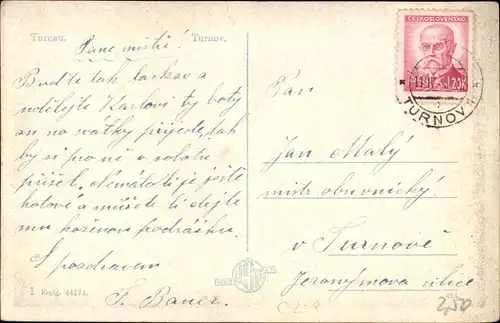 Turnau. Turnov.
Pane mistře!
Buďte tak laskav a
udělejte Karlovi ty boty
on na svátky přijede, tak
by si pro ně v sobotu
přišel. Nemáte-li je ještě
hotové a můžete-li dejte
mu koženou podrážku.
S pozdravem
F. Bauer.
1 44174
ČESKOSLOVENSKO
1.20K
TURNOV
Pan
Jan Malý
mistr obuvnický
v Turnově
Jeronýmova ulice
2,50